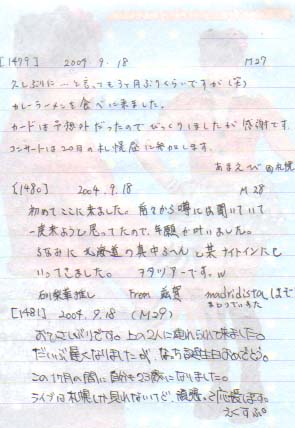 [1479] 2004.9.18 M27
久しぶりに…と言っても3ヶ月ぶりくらいですが(笑)
カレーラーメンを食べに来ました。
カードは予想外だったのでびっくりしましたが感謝です。
コンサートは20日の札幌夜に参加します。
あまえび@札幌
[1480] 2004.9.18 M28
初めてここに来ました。前々から噂には聞いていて
一度来ようと思ってたので、年願が叶いました。
ちなみに北海道の真中らへんと某ナイトインにも
いってきました。 ヲタツアーです。w
石川梨華推し From 滋賀 madridista
[1481] 2004.9.18 (M29)
おひさしぶりです。上の2人に連れられて来ました。
だいぶ遅くなりましたが、なっち誕生日おめでとう。
この1ヶ月の間に自分も23歳になりました。
ライブは札幌しか見れないけど、応援します。
えくすぷ。